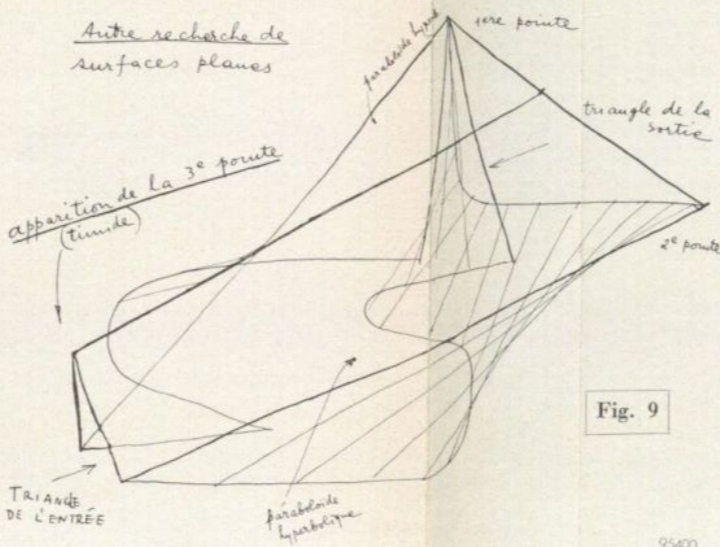 Autre recherche de
surfaces planes
paraboloïde hyperb
1ere pointe
triangle de la
sortie
apparition de la 3e pointe
(timide)
2e pointe
Fig. 9
TRIANGLE
DE L'ENTRÉE
paraboloïde
hyperbolique
95400